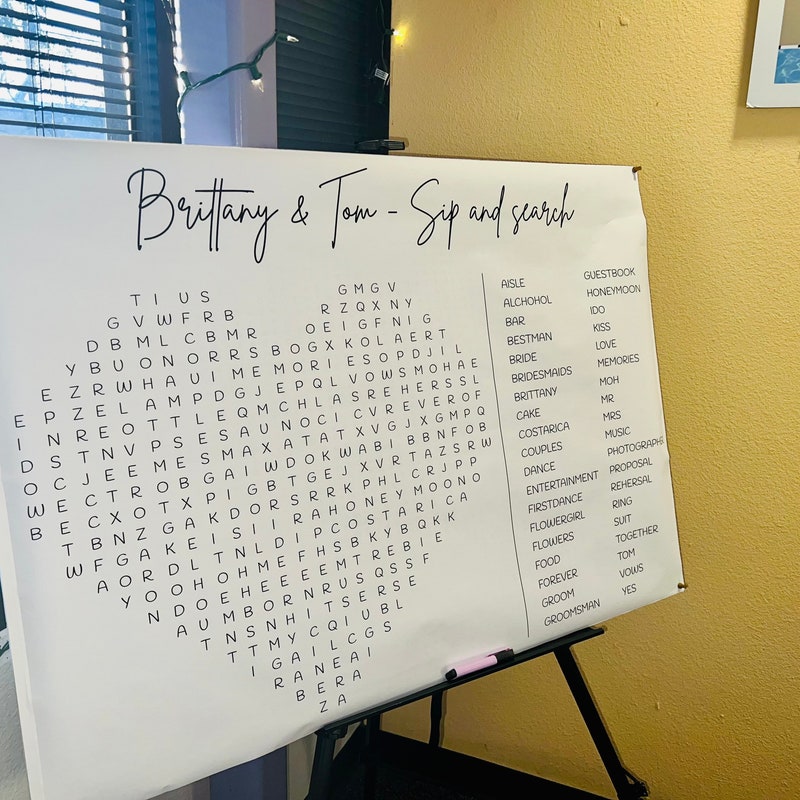 Brittany & Tom - Sip and search
T I U S G M G V
G V W F R B R Z Q X N Y
D B M L C B M R O E I G F N I G
Y B U O N O R R S B O G X K O L A E R T
E Z R W H A U I M E M O R I E S O P D J I L
E P Z E L A M P D G J E P Q L V O W S M O H A E
I N R E O T T L E Q M C H L A S R E H E R S S L
D S T N V P S E S A U N O C I C V R E V E R O F
O C J E E M E S M A X A T A T X V G J X G M P Q
W E C T R O B G A I W D O K W A B I B B N F O B
B E C X O T X P I G B T G E J X V R T A Z S R W
T B N Z G A K D O R S R R K P H L C R J P P
W F G A K E I S I I R A H O N E Y M O O N O
A O R D L T N L D I P C O S T A R I C A
Y O O H O H M E F H S B K Y B Q K K
N D O E H E E E E M T R E B I E
A U M B O R N R U S Q S S F
T N S N H I T S E R S E
T T M Y C Q I U B L
I G A I L C G S
R A N E A I
B E R A
Z A
AISLE
ALCHOHOL
BAR
BESTMAN
BRIDE
BRIDESMAIDS
BRITTANY
CAKE
COSTARICA
COUPLES
DANCE
ENTERTAINMENT
FIRSTDANCE
FLOWERGIRL
FLOWERS
FOOD
FOREVER
GROOM
GROOMSMAN
GUESTBOOK
HONEYMOON
IDO
KISS
LOVE
MEMORIES
MOH
MR
MRS
MUSIC
PHOTOGRAPH
PROPOSAL
REHERSAL
RING
SUIT
TOGETHER
TOM
VOWS
YES